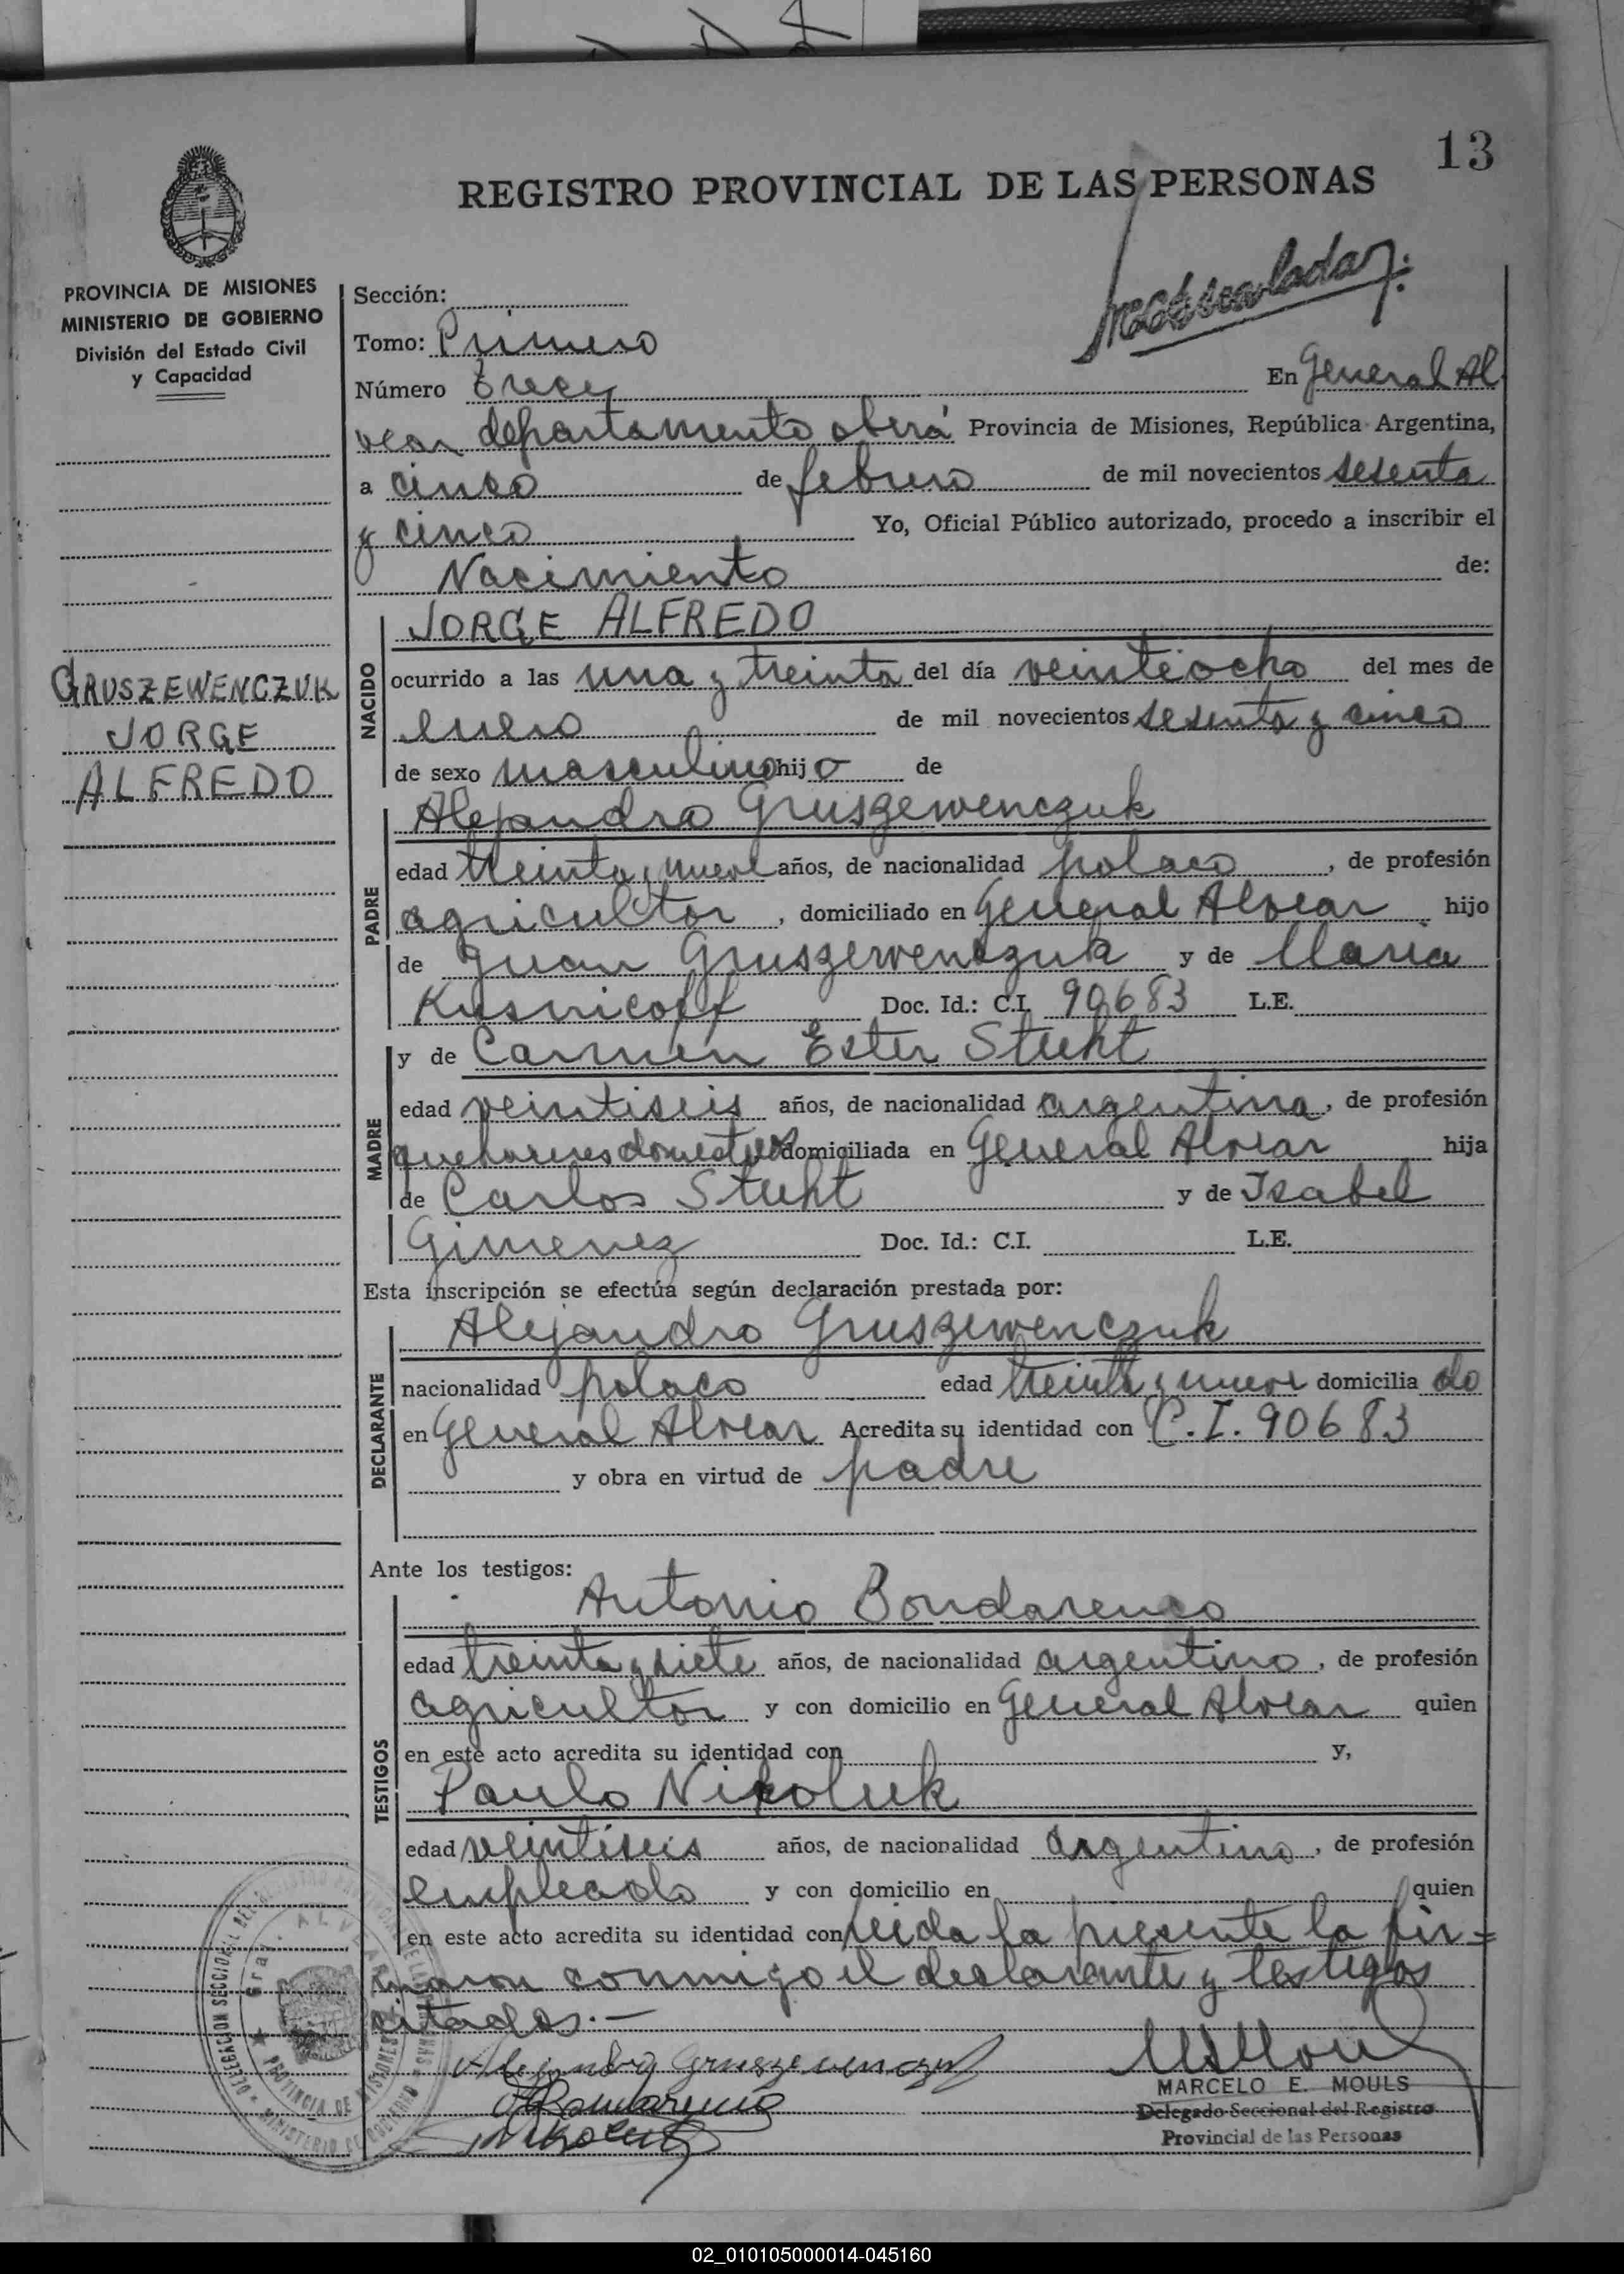 13
REGISTRO PROVINCIAL DE LAS PERSONAS
PROVINCIA DE MISIONES
MINISTERIO DE GOBIERNO
División del Estado Civil
y Capacidad
Sección:
Tomo: Primero
Número trece En General Al
vear departamento oberá Provincia de Misiones, República Argentina,
a cinco de febrero de mil novecientos sesenta
y cinco Yo, Oficial Público autorizado, procedo a inscribir el
Nacimiento de:
GRUSZEWENCZUK
JORGE
ALFREDO
NACIDO
JORGE ALFREDO
ocurrido a las una y treinta del día veintiocho del mes de
enero de mil novecientos sesenta y cinco
de sexo masculino hijo de
PADRE
Alejandro Gruszewenczuk
edad treinta y nueve años, de nacionalidad polaco, de profesión
agricultor, domiciliado en General Alvear hijo
de Juan Gruszewenczuk y de María
Kusnicoff Doc. Id.: C.I. 90683 L.E.
MADRE
y de Carmen Ester Stuht
edad veintiseis años, de nacionalidad argentina, de profesión
quehaceres domesticos domiciliada en General Alvear hija
de Carlos Stuht y de Isabel
Gimenez Doc. Id.: C.I. L.E.
Esta inscripción se efectúa según declaración prestada por:
DECLARANTE
Alejandro Gruszewenczuk
nacionalidad polaco edad treinta y nueve domiciliado
en General Alvear Acredita su identidad con C.I. 90683
y obra en virtud de padre
Ante los testigos:
TESTIGOS
Antonio Bondarenco
edad treinta y siete años, de nacionalidad argentino, de profesión
agricultor y con domicilio en General Alvear quien
en este acto acredita su identidad con y,
Paulo Nikoluk
edad veintiseis años, de nacionalidad argentino, de profesión
empleado y con domicilio en quien
en este acto acredita su identidad con leida la presente la fir=
maron conmigo el declarante y testigos
citados.-
Alejandro Gruszewenczuk
MARCELO E. MOULS
Delegado Seccional del Registro
Provincial de las Personas
02_010105000014-045160